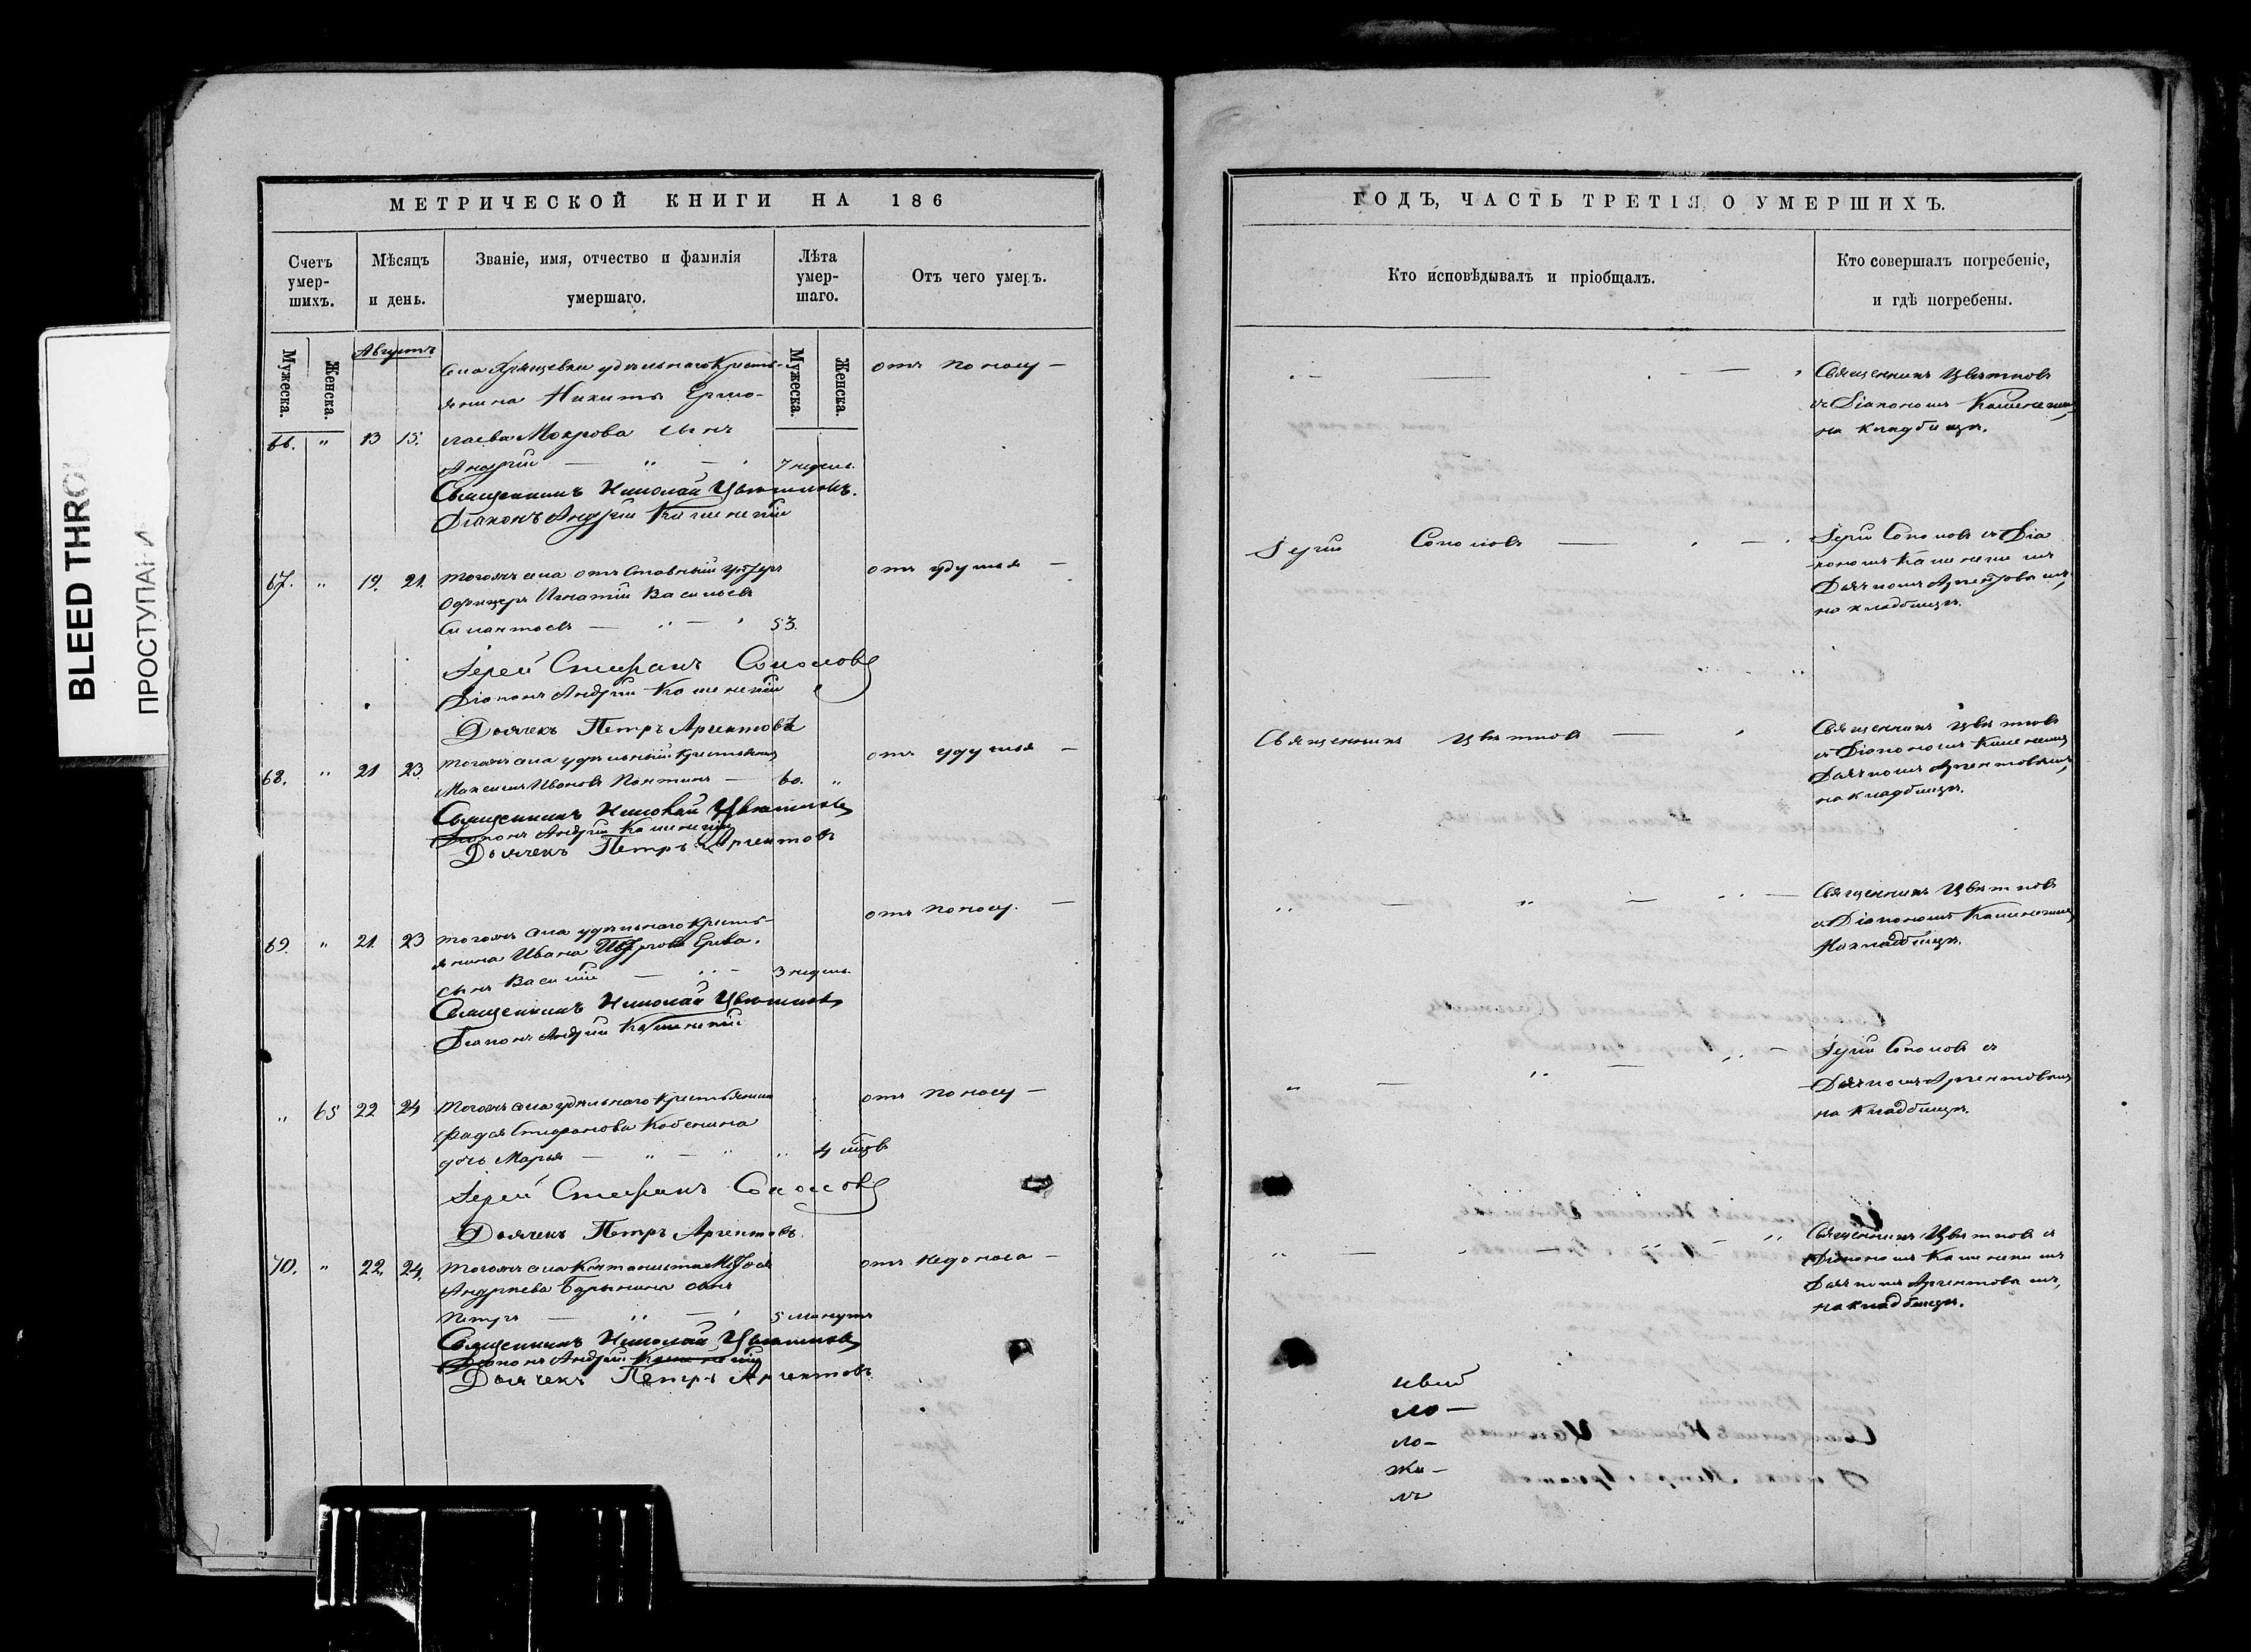 BLEED THRO
ПРОСТУПАНИ
МЕТРИЧЕСКОЙ КНИГИ НА 186
Счетъ умер- шихъ.
Мѣсяцъ и день.
Званіе, имя, отчество и фамилія умершаго.
Лѣта умер- шаго.
Отъ чего умеръ.
Мужеска.
Женска.
Августъ
Мужеска.
Женска.
села Хрящевки удѣльнаго кресть-
янина Никиты Ермо-
66. " 13 15. лаева Мокрова сынъ
Андрей — " — 7 недель.
отъ поносу —
Священникъ Николай Цвѣтковъ.
Діаконъ Андрей Каменскій
67. " 19. 21. тогожъ села отставный унтеръ
Офицеръ Игнатій Васильевъ
53.
отъ удушья —
Іерей Стефанъ Соколовъ
Діаконъ Андрей Каменскій
Дьячекъ Петръ Аргентовъ
68. " 21 23. тогожъ села удѣльный крестьянинъ
Максимъ Ивановъ Пантинъ — 60. "
отъ удушья —
Священникъ Николай Цвѣтковъ
Діаконъ Андрей Каменскій
Дьячекъ Петръ Аргентовъ
69. " 21. 23 тогожъ села удѣльнаго кресть-
янина Ивана
сынъ Василій — " — 3 недель.
отъ поносу. —
Священникъ Николай Цвѣтковъ
Діаконъ Андрей Каменскій
" 65 22 24 тогожъ села удѣльнаго крестьянина
Фадея Стефанова Кобенина
дочь Марья — " — " " 4 мцовъ
отъ поносу —
Іерей Стефанъ Соколовъ
Дьячекъ Петръ Аргентовъ.
70. " 22. 24. тогожъ села
Андреева Барынина сынъ
Петръ — " — 5 минутъ
отъ недоноса —
Священникъ Николай Цвѣтковъ
Діаконъ Андрей Каменскій
Дьячекъ Петръ Аргентовъ
ГОДЪ, ЧАСТЬ ТРЕТІЯ, О УМЕРШИХЪ.
Кто исповѣдывалъ и пріобщалъ.
Кто совершалъ погребеніе, и гдѣ погребены.
Священникъ Цвѣтковъ
съ Діакономъ Каменскимъ,
на кладбищѣ.
Іерей Соколовъ —
Іерей Соколовъ съ Діа
кономъ Каменскимъ
Дьячкомъ Аргентовымъ,
на кладбищѣ.
Священникъ Цвѣтковъ —
Священникъ Цвѣтковъ
съ Діакономъ Каменскимъ
Дьячкомъ Аргентовымъ,
на кладбищѣ.
Священникъ Цвѣтковъ
съ Діакономъ Каменскимъ
на кладбищѣ.
Іерей Соколовъ съ
Дьячкомъ Аргентовымъ
на кладбищѣ.
Священникъ Цвѣтковъ съ
Діакономъ Каменскимъ
Дьячкомъ Аргентовымъ,
на кладбищѣ.
ло-
ло-